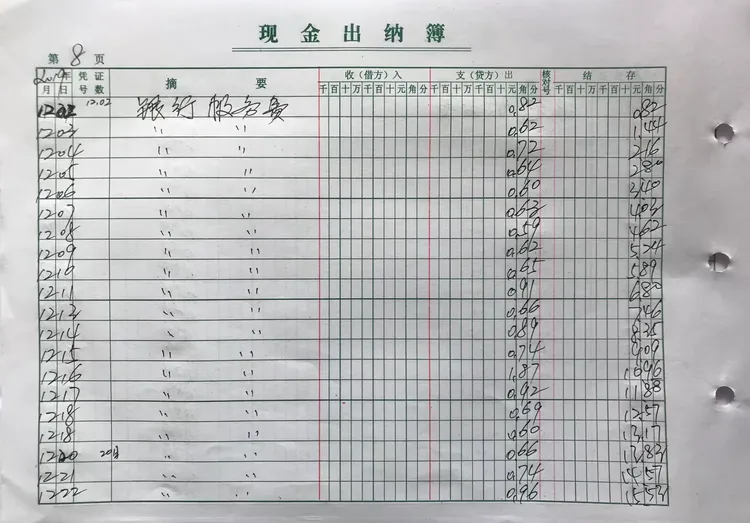 现金出纳簿
第 8 页
2019年 凭证 摘要 收（借方）入 支（贷方）出 核对号 结存
月 日 号数 千百十万千百十元角分 千百十万千百十元角分 千百十万千百十元角分
12.02 银行服务费 0.82 0.82
1203 〃 〃 0.62 1.44
1204 〃 〃 0.72 2.16
1205 〃 〃 0.64 2.80
1206 〃 〃 0.60 3.40
1207 〃 〃 0.63 4.03
1208 〃 〃 0.59 4.62
1209 〃 〃 0.62 5.24
1210 〃 〃 0.65 5.89
1211 〃 〃 0.91 6.80
1213 〃 〃 0.66 7.46
1214 〃 〃 0.89 8.35
1215 〃 〃 0.74 9.09
1216 〃 〃 1.87 10.96
1217 〃 〃 0.92 11.88
1218 〃 〃 0.69 12.57
1218 〃 〃 0.60 13.17
1220 20日 〃 〃 0.66 13.83
1221 〃 〃 0.74 14.57
1222 〃 〃 0.96 15.53